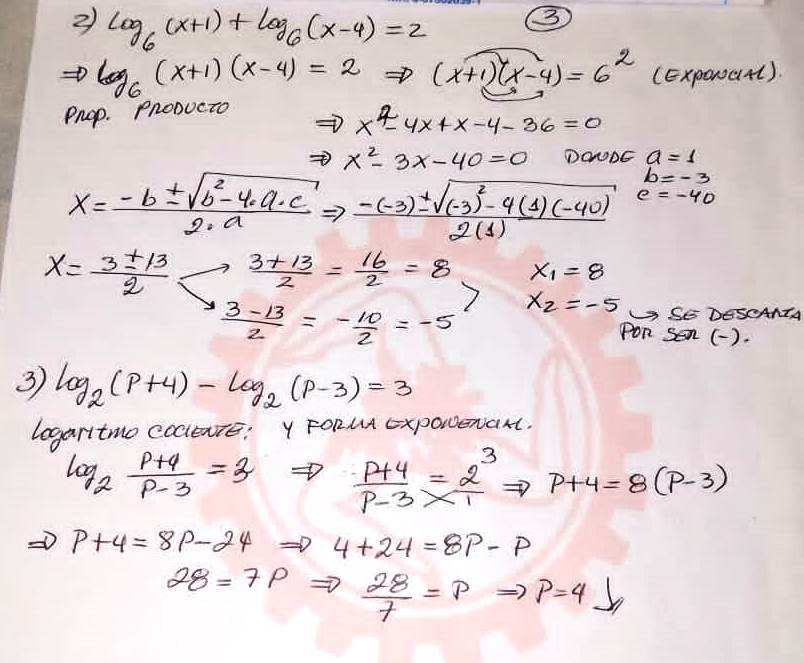 ③
2) log₆ (x+1) + log₆ (x-4) = 2
⇒ log₆ (x+1) (x-4) = 2 ⇒ (x+1)(x-4) = 6² (EXPONCIAL).
PROP. PRODUCTO
⇒ x² - 4x + x - 4 - 36 = 0
⇒ x² - 3x - 40 = 0 DONDE a = 1
b = -3
c = -40
X = (-b ± √(b² - 4·a·c)) / (2·a) ⇒ (-(-3) ± √((-3)² - 4(1)(-40))) / 2(1)
X = (3 ± 13)/2 → (3+13)/2 = 16/2 = 8 X₁ = 8
→ (3-13)/2 = -10/2 = -5 X₂ = -5 ↪ SE DESCARTA
POR SER (-).
3) log₂ (P+4) - log₂ (P-3) = 3
logaritmo COCIENTE: Y FORMA EXPONENCIAL.
log₂ (P+4)/(P-3) = 3 ⇒ (P+4)/(P-3) = 2³/1 ⇒ P+4 = 8(P-3)
⇒ P+4 = 8P-24 ⇒ 4+24 = 8P-P
28 = 7P ⇒ 28/7 = P ⇒ P=4